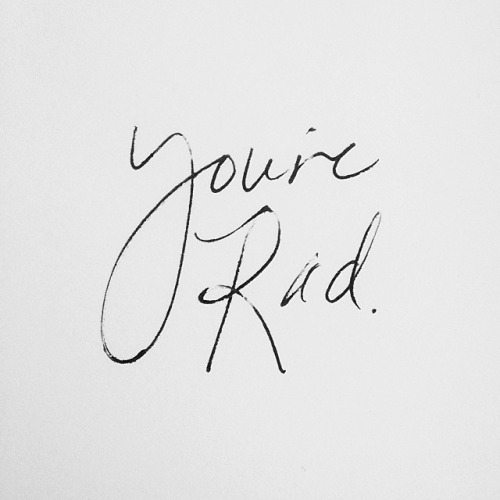 you're
Rad.